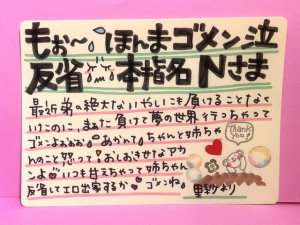 もぉ〜ほんまゴメン泣
反省 本指名Nさま
最近弟の絶大ないやしいにも負けることなく
いけこのに、まぁた負けて夢の世界行っちゃってゴメンよぉぉぉ
あかんて!ちゃんと姉ちゃ
んのこと怒って!おしおきせなアカ
ンよ いつも甘えちゃって姉ちゃん
反省してエロ出家するか ゴメンね。
里紗より
Thank you!